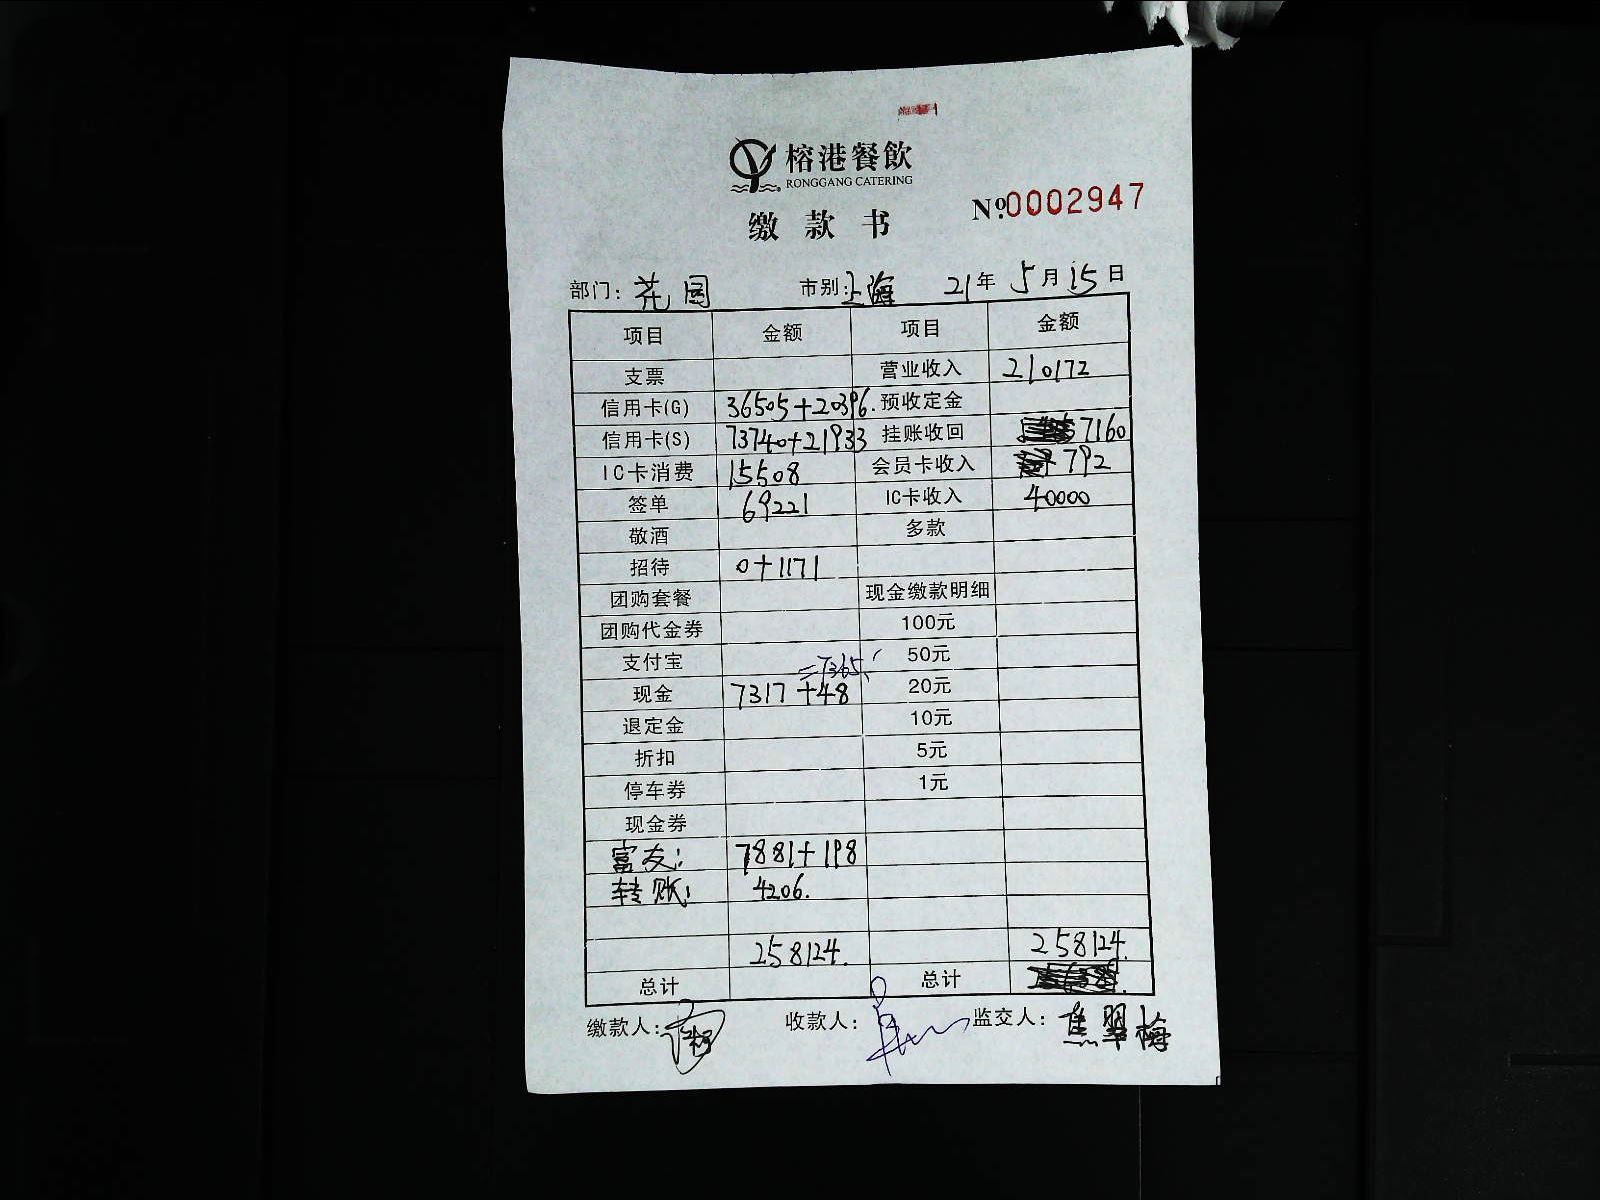 榕港餐飲
RONGGANG CATERING
缴款书 №0002947
部门：花园 市别：上海 21年5月15日
项目 金额 项目 金额
支票 营业收入 210172
信用卡(G) 36505+20396. 预收定金
信用卡(S) 73740+21933 挂账收回 7160
IC卡消费 15508 会员卡收入 792
签单 69221 IC卡收入 40000
敬酒 多款
招待 0+1171
团购套餐 现金缴款明细
团购代金券 100元
支付宝 =7365 50元
现金 7317+48 20元
退定金 10元
折扣 5元
停车券 1元
现金券
富友： 7881+198
转账： 4206.
258124. 258124.
总计 总计
缴款人： 收款人： 监交人：焦翠梅